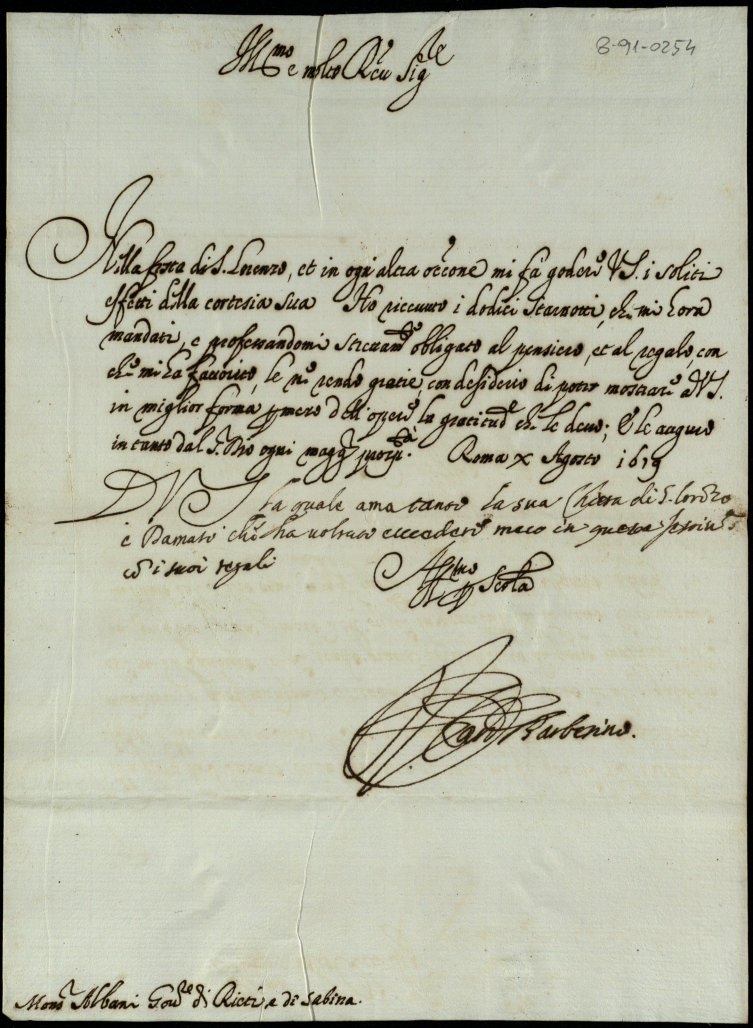 8-91-0254
Ill.mo e molto R.do Sig.re
Nella festa di S. Lorenzo, et in ogni altra occ.one mi fà godere V.S. i soliti
effetti della cortesia sua Ho riceuuto i dodici starnotti, che mi hora
mandati, e professandomi strettam.te obligato al pensiero, et al regalo con
che mi ha fauorito, le ne rendo gratie, con desiderio di poter mostrare à V.S.
in miglior forma p mezo dell'opere la gratitud.e che le deuo; E le auguro
intanto dal S.r Dio ogni magg.r Roma x Agosto 1619
D V S la quale ama tanto la sua Chiesa di S. Lorenzo
e Damaso che ha voluto eccedere meco in questa
cō i suoi regali
Aff.mo
Card Barberino.
Mons.r Albani Gou.re di Rieti e di Sabina.